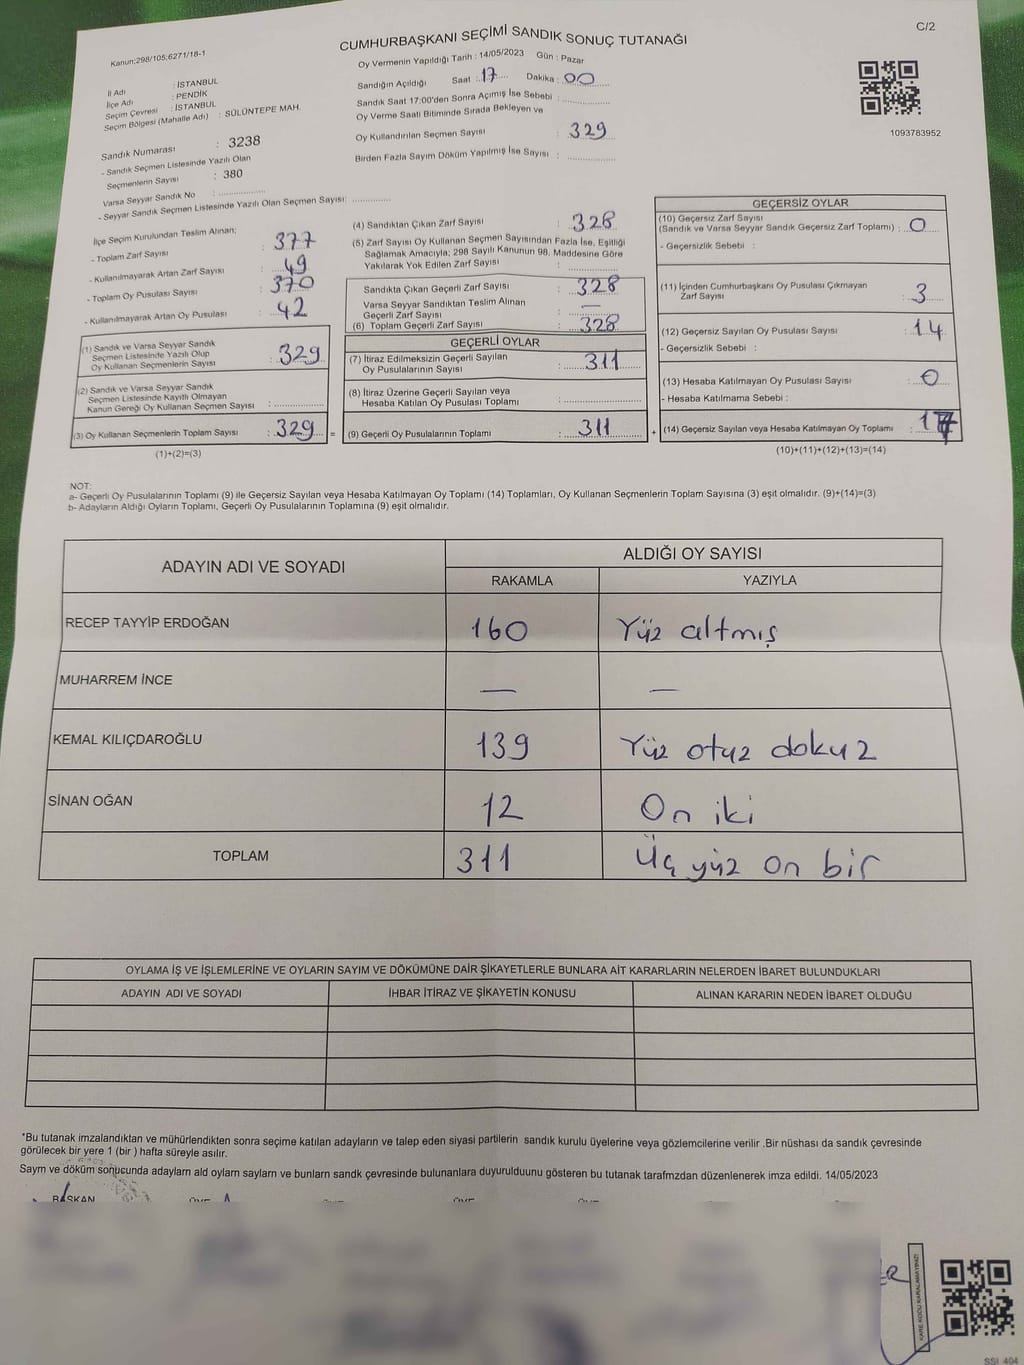 C/2
Kanun:298/105;6271/18-1
CUMHURBAŞKANI SEÇİMİ SANDIK SONUÇ TUTANAĞI
Oy Vermenin Yapıldığı Tarih : 14/05/2023 Gün : Pazar
1093783952
İl Adı : İSTANBUL
İlçe Adı : PENDİK
Seçim Çevresi : İSTANBUL
Seçim Bölgesi (Mahalle Adı) : SÜLÜNTEPE MAH.
Sandık Numarası : 3238
- Sandık Seçmen Listesinde Yazılı Olan
Seçmenlerin Sayısı : 380
Varsa Seyyar Sandık No :
- Seyyar Sandık Seçmen Listesinde Yazılı Olan Seçmen Sayısı:
Sandığın Açıldığı Saat : 17 Dakika : 00
Sandık Saat 17:00'den Sonra Açımış İse Sebebi :
Oy Verme Saati Bitiminde Sırada Bekleyen ve
Oy Kullandırılan Seçmen Sayısı : 329
Birden Fazla Sayım Döküm Yapılmış İse Sayısı :
İlçe Seçim Kurulundan Teslim Alınan;
- Toplam Zarf Sayısı : 377
- Kullanılmayarak Artan Zarf Sayısı : 49
- Toplam Oy Pusulası Sayısı : 370
- Kullanılmayarak Artan Oy Pusulası : 42
(1) Sandık ve Varsa Seyyar Sandık
Seçmen Listesinde Yazılı Olup
Oy Kullanan Seçmenlerin Sayısı : 329
(2) Sandık ve Varsa Seyyar Sandık
Seçmen Listesinde Kayıtlı Olmayan
Kanun Gereği Oy Kullanan Seçmen Sayısı :
(3) Oy Kullanan Seçmenlerin Toplam Sayısı : 329 =
(1)+(2)=(3)
(4) Sandıktan Çıkan Zarf Sayısı : 328
(5) Zarf Sayısı Oy Kullanan Seçmen Sayısından Fazla İse, Eşitliği
Sağlamak Amacıyla; 298 Sayılı Kanunun 98. Maddesine Göre
Yakılarak Yok Edilen Zarf Sayısı :
Sandıkta Çıkan Geçerli Zarf Sayısı : 328
Varsa Seyyar Sandıktan Teslim Alınan
Geçerli Zarf Sayısı : —
(6) Toplam Geçerli Zarf Sayısı : 328
GEÇERLİ OYLAR
(7) İtiraz Edilmeksizin Geçerli Sayılan
Oy Pusulalarının Sayısı : 311
(8) İtiraz Üzerine Geçerli Sayılan veya
Hesaba Katılan Oy Pusulası Toplamı :
(9) Geçerli Oy Pusulalarının Toplamı : 311 +
GEÇERSİZ OYLAR
(10) Geçersiz Zarf Sayısı
(Sandık ve Varsa Seyyar Sandık Geçersiz Zarf Toplamı) : 0
- Geçersizlik Sebebi :
(11) İçinden Cumhurbaşkanı Oy Pusulası Çıkmayan
Zarf Sayısı : 3
(12) Geçersiz Sayılan Oy Pusulası Sayısı : 14
- Geçersizlik Sebebi :
(13) Hesaba Katılmayan Oy Pusulası Sayısı : 0
- Hesaba Katılmama Sebebi :
(14) Geçersiz Sayılan veya Hesaba Katılmayan Oy Toplamı : 17
(10)+(11)+(12)+(13)=(14)
NOT:
a- Geçerli Oy Pusulalarının Toplamı (9) ile Geçersiz Sayılan veya Hesaba Katılmayan Oy Toplamı (14) Toplamları, Oy Kullanan Seçmenlerin Toplam Sayısına (3) eşit olmalıdır. (9)+(14)=(3)
b- Adayların Aldığı Oyların Toplamı, Geçerli Oy Pusulalarının Toplamına (9) eşit olmalıdır.
ADAYIN ADI VE SOYADI
ALDIĞI OY SAYISI
RAKAMLA YAZIYLA
RECEP TAYYİP ERDOĞAN 160 Yüz altmış
MUHARREM İNCE — —
KEMAL KILIÇDAROĞLU 139 Yüz otuz dokuz
SİNAN OĞAN 12 On iki
TOPLAM 311 Üç yüz on bir
OYLAMA İŞ VE İŞLEMLERİNE VE OYLARIN SAYIM VE DÖKÜMÜNE DAİR ŞİKAYETLERLE BUNLARA AİT KARARLARIN NELERDEN İBARET BULUNDUKLARI
ADAYIN ADI VE SOYADI İHBAR İTİRAZ VE ŞİKAYETİN KONUSU ALINAN KARARIN NEDEN İBARET OLDUĞU
*Bu tutanak imzalandıktan ve mühürlendikten sonra seçime katılan adayların ve talep eden siyasi partilerin sandık kurulu üyelerine veya gözlemcilerine verilir .Bir nüshası da sandık çevresinde
görülecek bir yere 1 (bir ) hafta süreyle asılır.
Sayım ve döküm sonucunda adayların ald oyların sayları ve bunların sandk çevresinde bulunanlara duyurulduunu gösteren bu tutanak tarafmzdan düzenlenerek imza edildi. 14/05/2023
BAŞKAN
KARE KODU KARALAMAYINIZ!
SSI_404